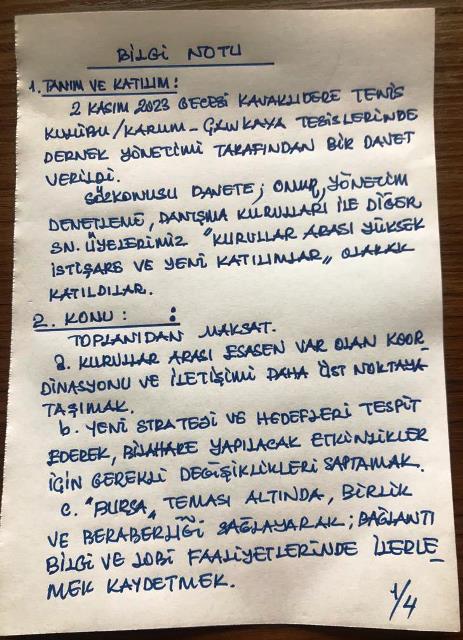 BİLGİ NOTU
1. TANIM VE KATILIM :
2 KASIM 2023 GECESİ KAVAKLIDERE TENİS
KULÜBÜ/KARUM-ÇANKAYA TESİSLERİNDE
DERNEK YÖNETİMİ TARAFINDAN BİR DAVET
VERİLDİ.
SÖZKONUSU DAVETE; ONUR, YÖNETİM
DENETLEME, DANIŞMA KURULLARI İLE DİĞER
SN. ÜYELERİMİZ "KURULLAR ARASI YÜKSEK
İSTİŞARE VE YENİ KATILIMLAR" OLARAK
KATILDILAR.
2. KONU :
TOPLANIDAN MAKSAT.
a. KURULLAR ARASI ESASEN VAR OLAN KOOR_
DİNASYONU VE İLETİŞİMİ DAHA ÜST NOKTAYA
TAŞIMAK.
b. YENİ STRATEJİ VE HEDEFLERİ TESPİT
EDEREK, BİLAHARE YAPILACAK ETKİNLİKLER
İÇİN GEREKLİ DEĞİŞİKLİKLERİ SAPTAMAK.
c. "BURSA" TEMASI ALTINDA, BİRLİK
VE BERABERLİĞİ SAĞLAYARAK; BAĞLANTI
BİLGİ VE LOBİ FAALİYETLERİNDE İLERLE_
MEK KAYDETMEK.
1/4